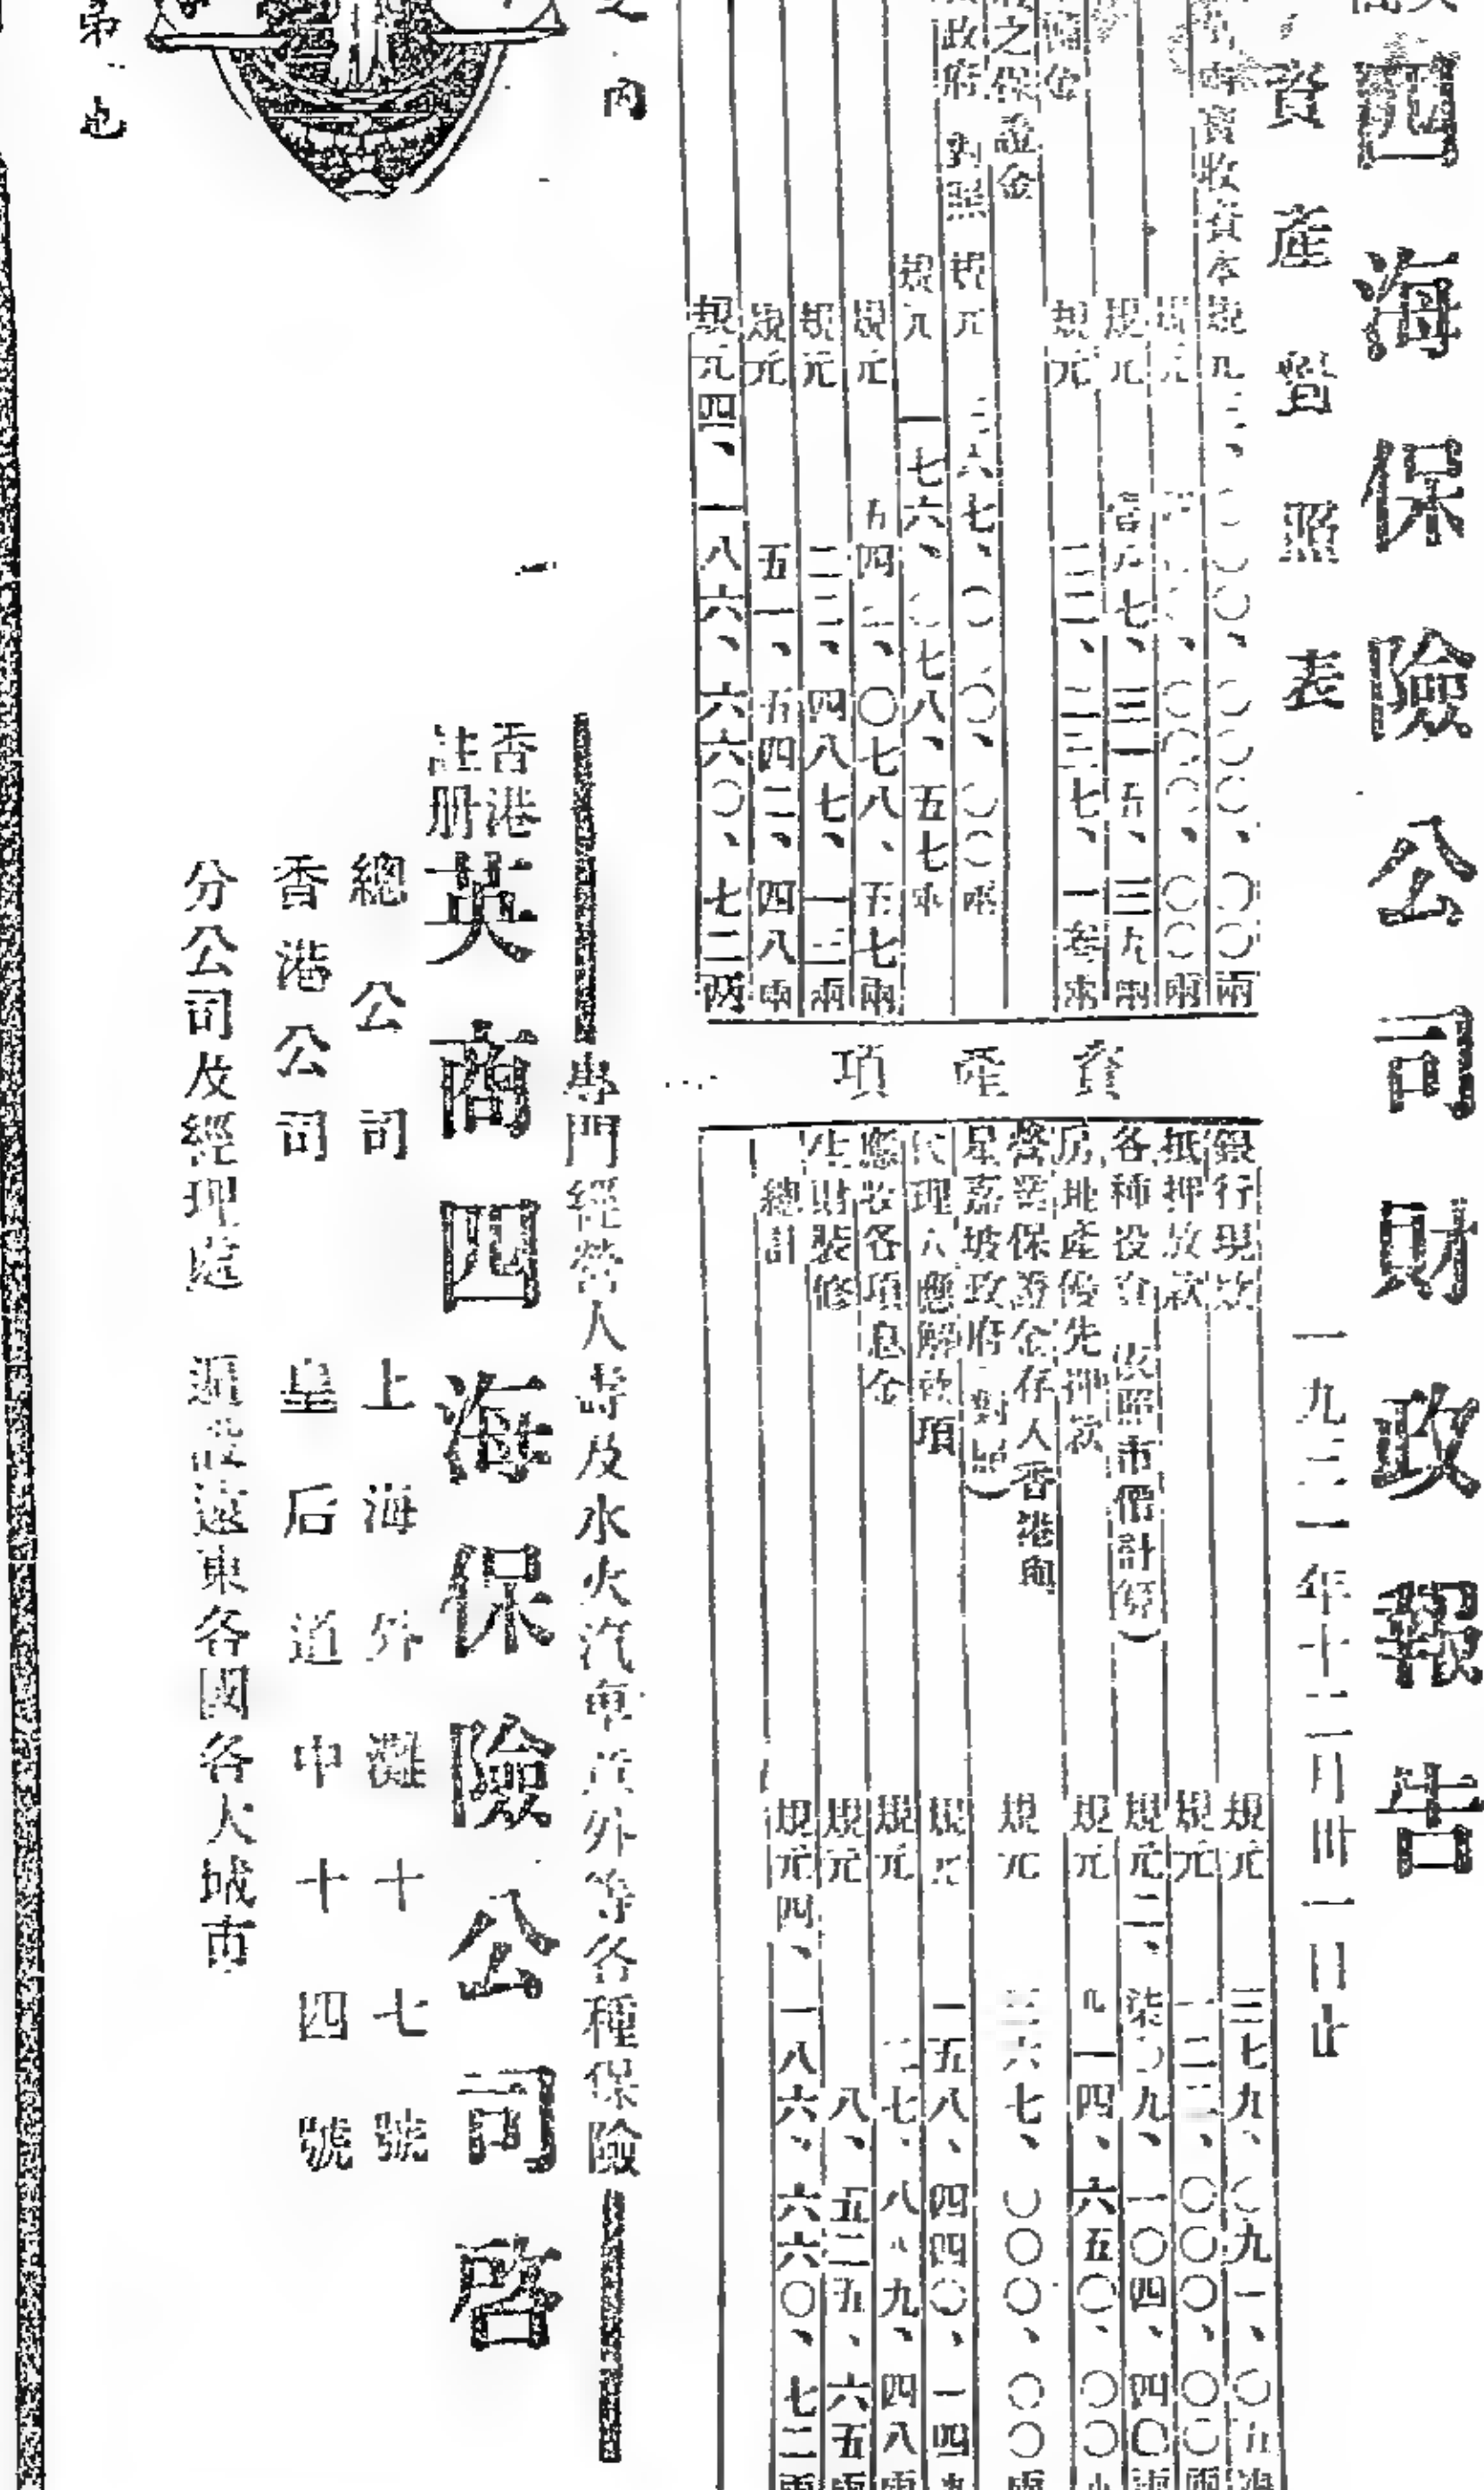 四海保險公司財政報告
資產對照表
一九三一年十二月卅一日止
實收資本規元
〇〇〇、〇〇兩
規元
、〇〇〇、〇〇兩
規元
七、三一五、三九兩
規元
二三七、一
之保證金
政府 對照 規元
六七、〇〇〇、〇〇兩
規元
一七六、〇七八、五七兩
規元
〇七八、五七兩
規元
二二、四八七、一三兩
規元
五一、五四二、四八兩
規元
四、一八六、六六〇、七二兩
資產項
銀行現款
規元
三七九、〇九一、〇五
抵押放款
規元
一二二、〇〇〇、〇〇兩
各種投資 (依照市價計算)
規元
二、柒〇九、一〇四、四〇兩
房地產優先押款
規元
九一四、六五〇、〇〇
營業保證金存入香港與
星嘉坡政府 (對照)
規元
三六七、〇〇〇、〇〇兩
代理人應解款項
規元
一五八、四四〇、一四
應收各項息金
規元
二七、八八九、四八兩
生財裝修
規元
八、五二五、六五兩
總計
規元
四、一八六、六六〇、七二兩
之內
專門經營人壽及水火汽車意外等各種保險
香港註册
英商四海保險公司啓
總公司 上海外灘十七號
香港公司 皇后道中十四號
分公司及經理處 遍設遠東各國各大城市
也